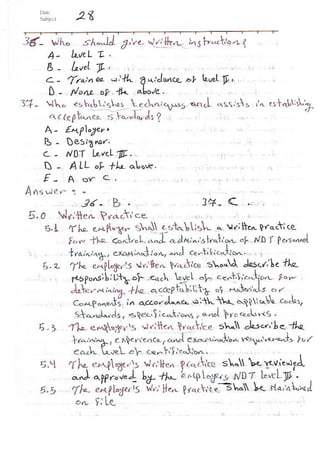 Date
Subject
28
36- Who should give written instruction?
A- level I.
B- level II.
C- Trainee with guidance of level II.
D- None of the above.
37- Who establishes techniques and assists in establishing
acceptance standards?
A- Employer.
B- Designer.
C- NDT Level III.
D- All of the above.
E- A or C.
Answer:-
36- B. 37- C.
5.0 Written Practice
5.1 The employer shall establish a written practice
for the control and administration of NDT personnel
training, examination, and certification.
5.2 The employer's written practice should describe the
responsibility of each level of certification for
determining the acceptability of materials or
components in accordance with the applicable codes,
standards, specifications, and procedures.
5.3 The employer's written practice shall describe the
training, experience, and examination requirements for
each level of certification.
5.4 The employer's written practice shall be reviewed
and approved by the employers NDT level III.
5.5 The employer's written practice shall be maintained
on file